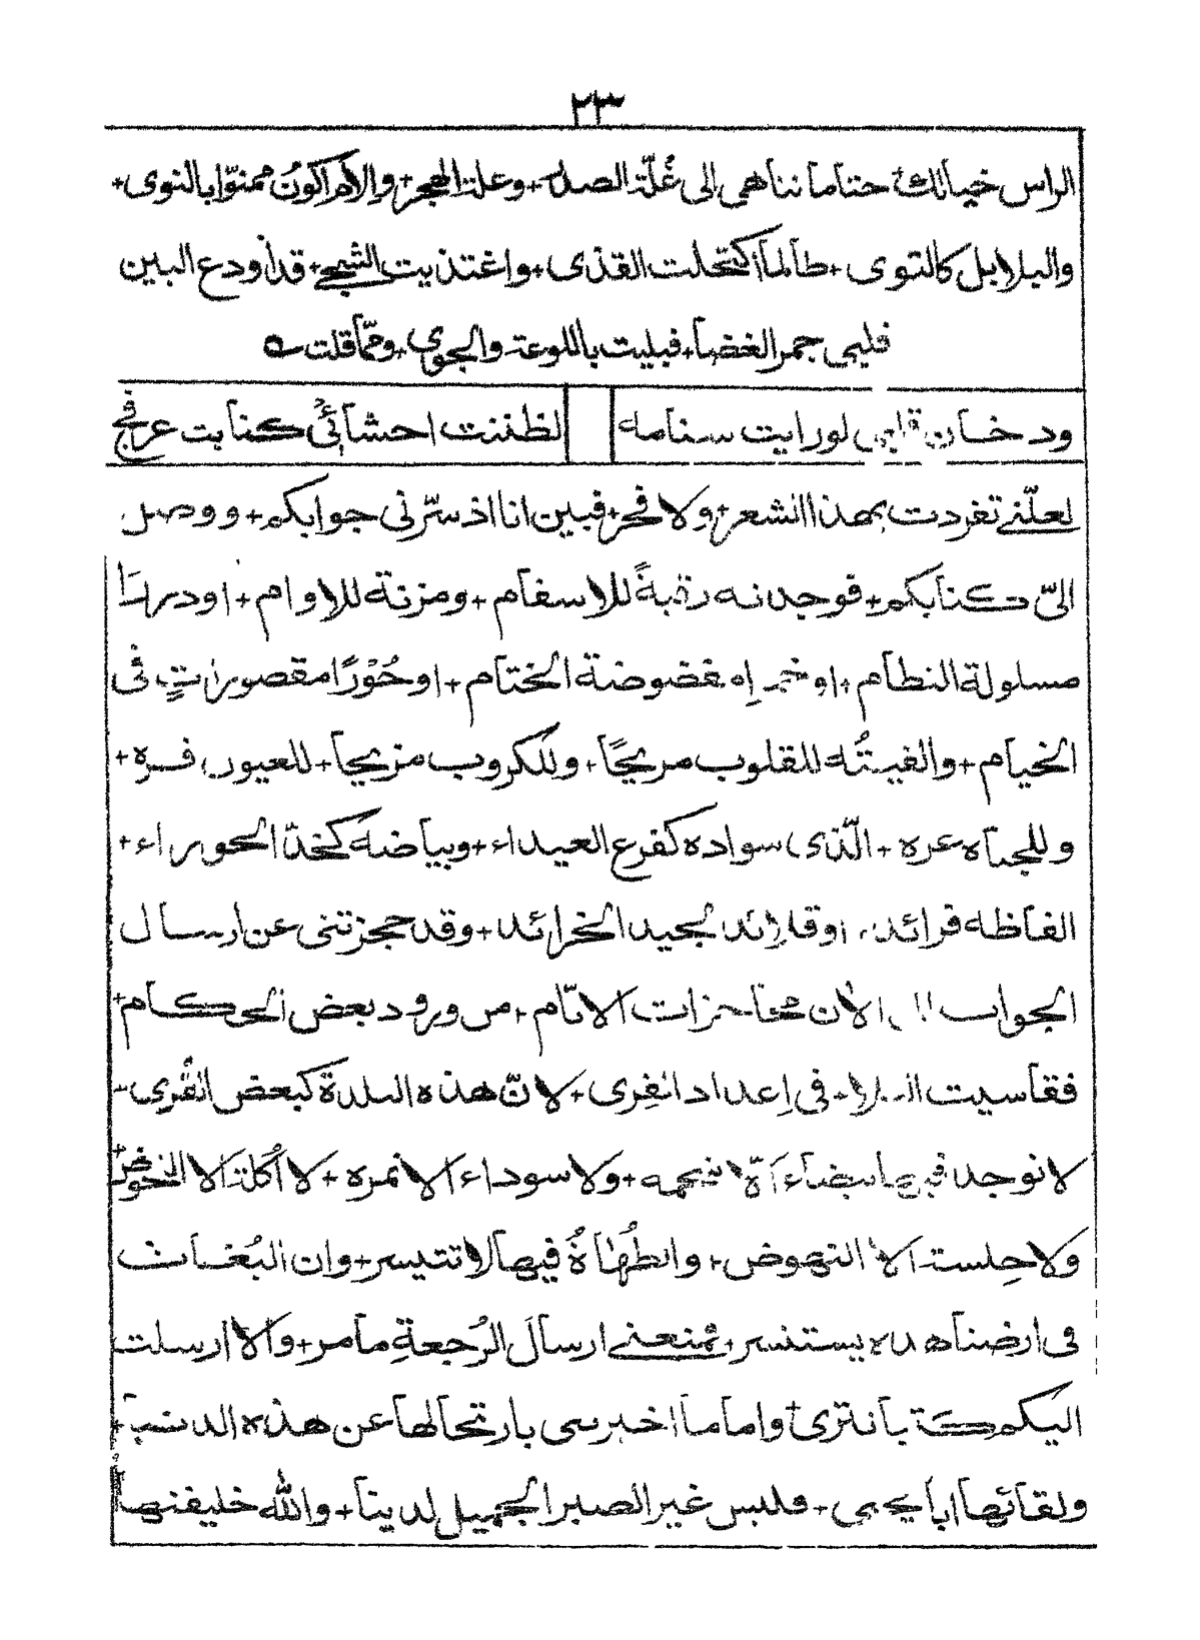 ٢٣
الراس خيالك حتاما نناهى الى غُلّة الصد + وعلة الهجر + والامَ اكونُ ممنوّا بالنوى +
والبلابل كالتوى + طالما اكتحلت القذى + واغتذيت الشجے + قد اودع البين
قلبى جمر الغضا + فبليت باللوعة والجوى + وممّا قلت
ودخان قلبى لو رايت سنامه لظننت احشائى كنابت عرفج
لعلّنے تفردت بهذا الشعر + ولا فخر + فبين انا اذ سرّنى جوابكم + ووصل
الىّ كتابكم + فوجدته رقبةً للاسقام + ومزنة للاوام + او درارا
مسلولة النظام + او خمراه مفضوضة الختام + او حُوْرًا مقصوراتٍ فى
الخيام + والفيتُه للقلوب مريحًا + وللكروب مزيحا + للعيون قره +
وللجباه غره + الّذى سواده كفرع الغيداء + وبياضه كخدّ الحوراء +
الفاظه فرائد او قلائد لجيد الخرائد + وقد حجزتنى عن ارسال
الجواب الى الان محاجزات الانام + من ورود بعض الحكام +
فقاسيت البلا + فى اِعداد القِرى + لانّ هذه البلدة كبعض القُرى
لا نوجد فيها بيضاء الّا شحمه + ولا سوداء الا تمره + لا اُكلة الا الخوض +
ولا جِلسة الا النهوض + والطُهاةُ فيها لا تتيسر + وان البُغاث
فى ارضنا هذه يستنسر + فمنعنے ارسالَ الرُجعةِ ما مر + والا ارسلت
اليكم كتابا تترى + واما ما اخبرتنى بارتحالها عن هذه الدنيا +
ولقائها ابا يحيى + فليس غير الصبر الجميل لدينا + والله خليفتها